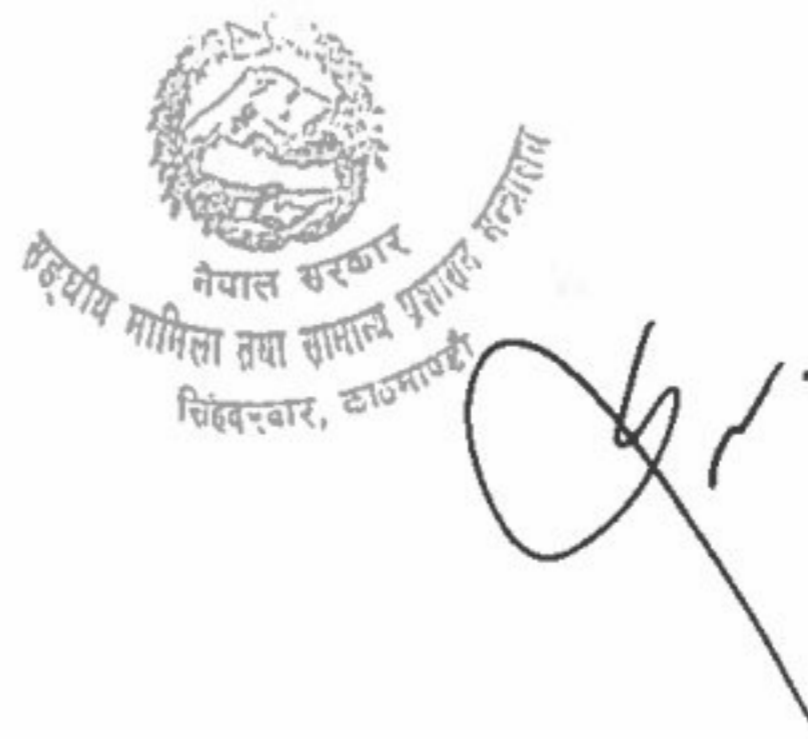 नेपाल सरकार
सङ्घीय मामिला तथा सामान्य प्रशासन मन्त्रालय
सिंहदरबार, काठमाण्डौं